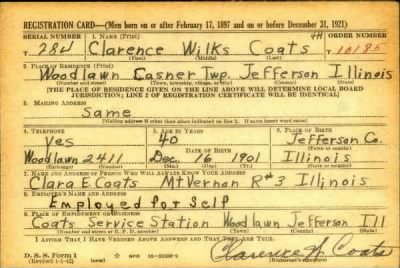 REGISTRATION CARD—(Men born on or after February 17, 1897 and on or before December 31, 1921)
SERIAL NUMBER 1. NAME (Print) ORDER NUMBER
T 284 Clarence Wilks Coats 10185
(First) (Middle) (Last)
2. PLACE OF RESIDENCE (Print)
Woodlawn Casner Twp. Jefferson Illinois
(Number and street) (Town, township, village, or city) (County) (State)
[THE PLACE OF RESIDENCE GIVEN ON THE LINE ABOVE WILL DETERMINE LOCAL BOARD
JURISDICTION; LINE 2 OF REGISTRATION CERTIFICATE WILL BE IDENTICAL]
3. MAILING ADDRESS
Same
(Mailing address if other than place indicated on line 2. If same insert word same)
4. TELEPHONE 5. AGE IN YEARS 6. PLACE OF BIRTH
Yes 40 Jefferson Co.
DATE OF BIRTH (Town or county)
Woodlawn 2411 Dec. 16 1901 Illinois
(Exchange) (Number) (Mo.) (Day) (Yr.) (State or country)
7. NAME AND ADDRESS OF PERSON WHO WILL ALWAYS KNOW YOUR ADDRESS
Clara E. Coats Mt Vernan R#3 Illinois
8. EMPLOYER'S NAME AND ADDRESS
Employed for Self
9. PLACE OF EMPLOYMENT OR BUSINESS
Coats Service Station Woodlawn Jefferson Ill
(Number and street or R. F. D. number) (Town) (County) (State)
I AFFIRM THAT I HAVE VERIFIED ABOVE ANSWERS AND THAT THEY ARE TRUE.
D. S. S. Form 1
(Revised 1-1-42) GPO Clarence W Coats
(Registrant's signature)